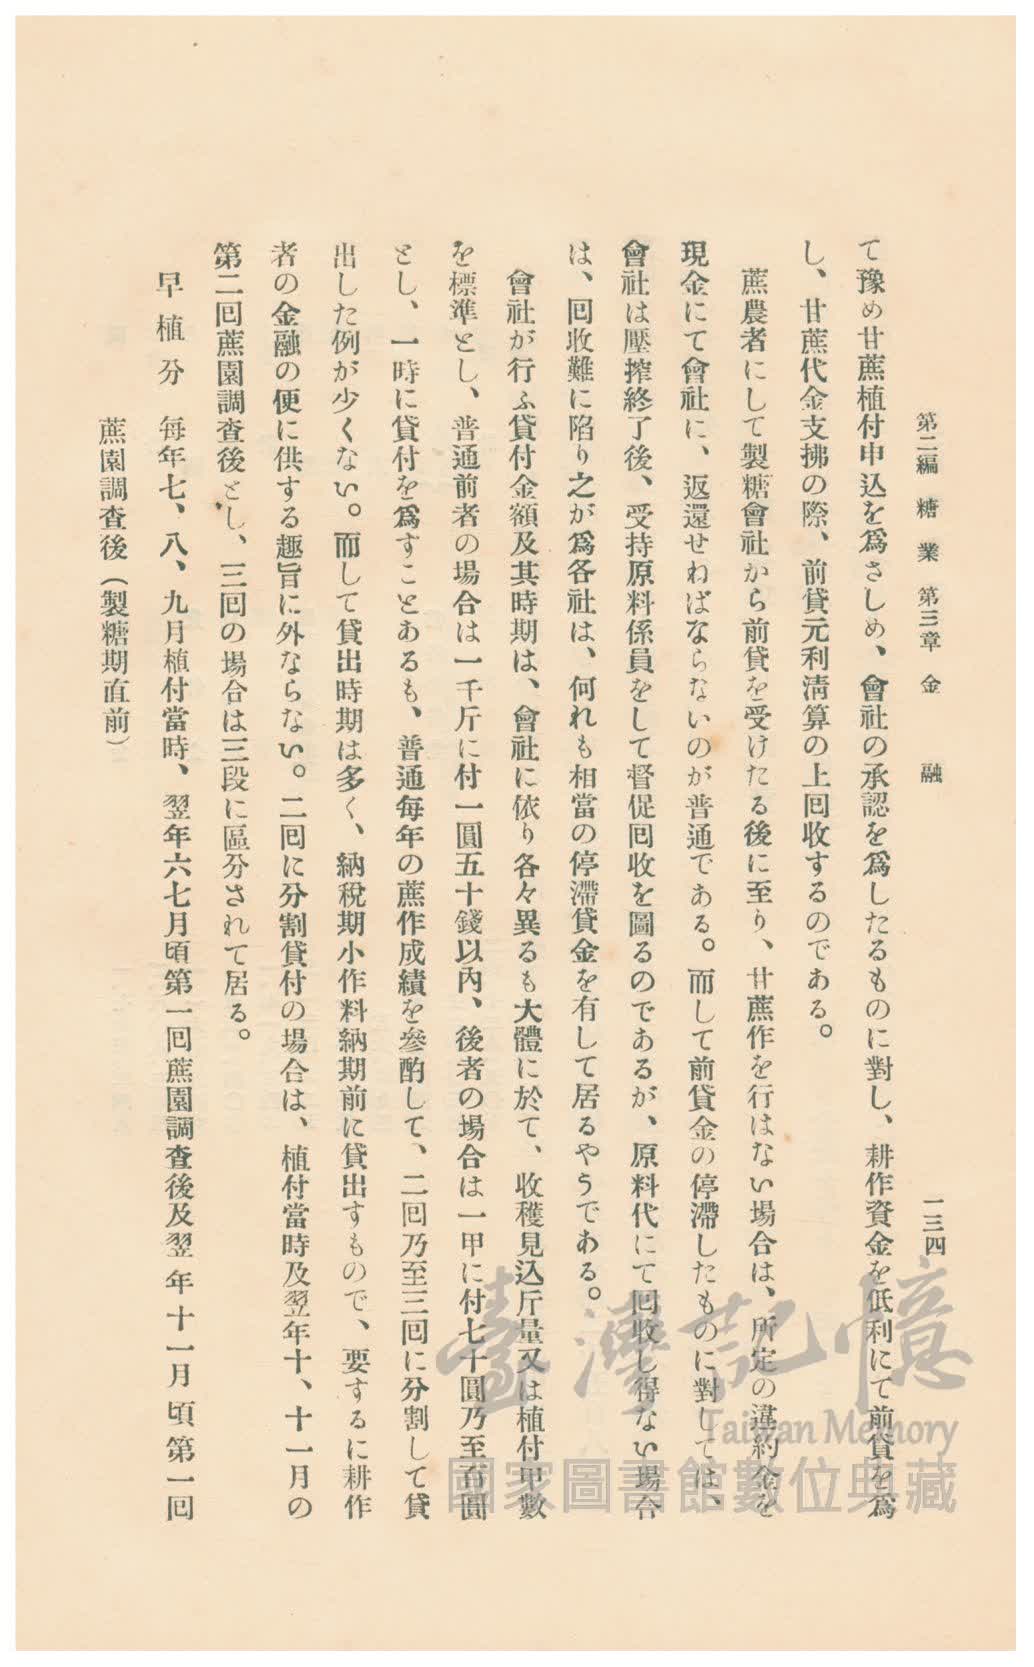 第二編 糖業 第三章 金融 一三四
て豫め甘蔗植付申込を爲さしめ、會社の承認を爲したるものに對し、耕作資金を低利にて前貸を爲
し、甘蔗代金支拂の際、前貸元利淸算の上回收するのである。
蔗農者にして製糖會社から前貸を受けたる後に至り、甘蔗作を行はない場合は、所定の違約金を
現金にて會社に、返還せねばならないのが普通である。而して前貸金の停滯したものに對しては、
會社は壓搾終了後、受持原料係員をして督促回收を圖るのであるが、原料代にて回收し得ない場合
は、回收難に陷り之が爲各社は、何れも相當の停滯貸金を有して居るやうである。
會社が行ふ貸付金額及其時期は、會社に依り各々異るも大體に於て、收穫見込斤量又は植付甲數
を標準とし、普通前者の場合は一千斤に付一圓五十錢以內、後者の場合は一甲に付七十圓乃至百圓
とし、一時に貸付を爲すことあるも、普通每年の蔗作成績を參酌して、二回乃至三回に分割して貸
出した例が少くない。而して貸出時期は多く、納稅期小作料納期前に貸出すもので、要するに耕作
者の金融の便に供する趣旨に外ならない。二回に分割貸付の場合は、植付當時及翌年十、十一月の
第二回蔗園調查後とし、三回の場合は三段に區分されて居る。
早植分 每年七、八、九月植付當時、翌年六七月頃第一回蔗園調查後及翌年十一月頃第一回
蔗園調查後（製糖期直前）
臺灣記憶
Taiwan Memory
國家圖書館數位典藏